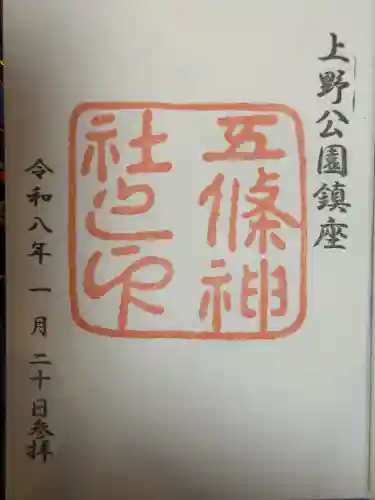 上野公園鎮座
五條神
社之印
令和八年一月二十日参拝